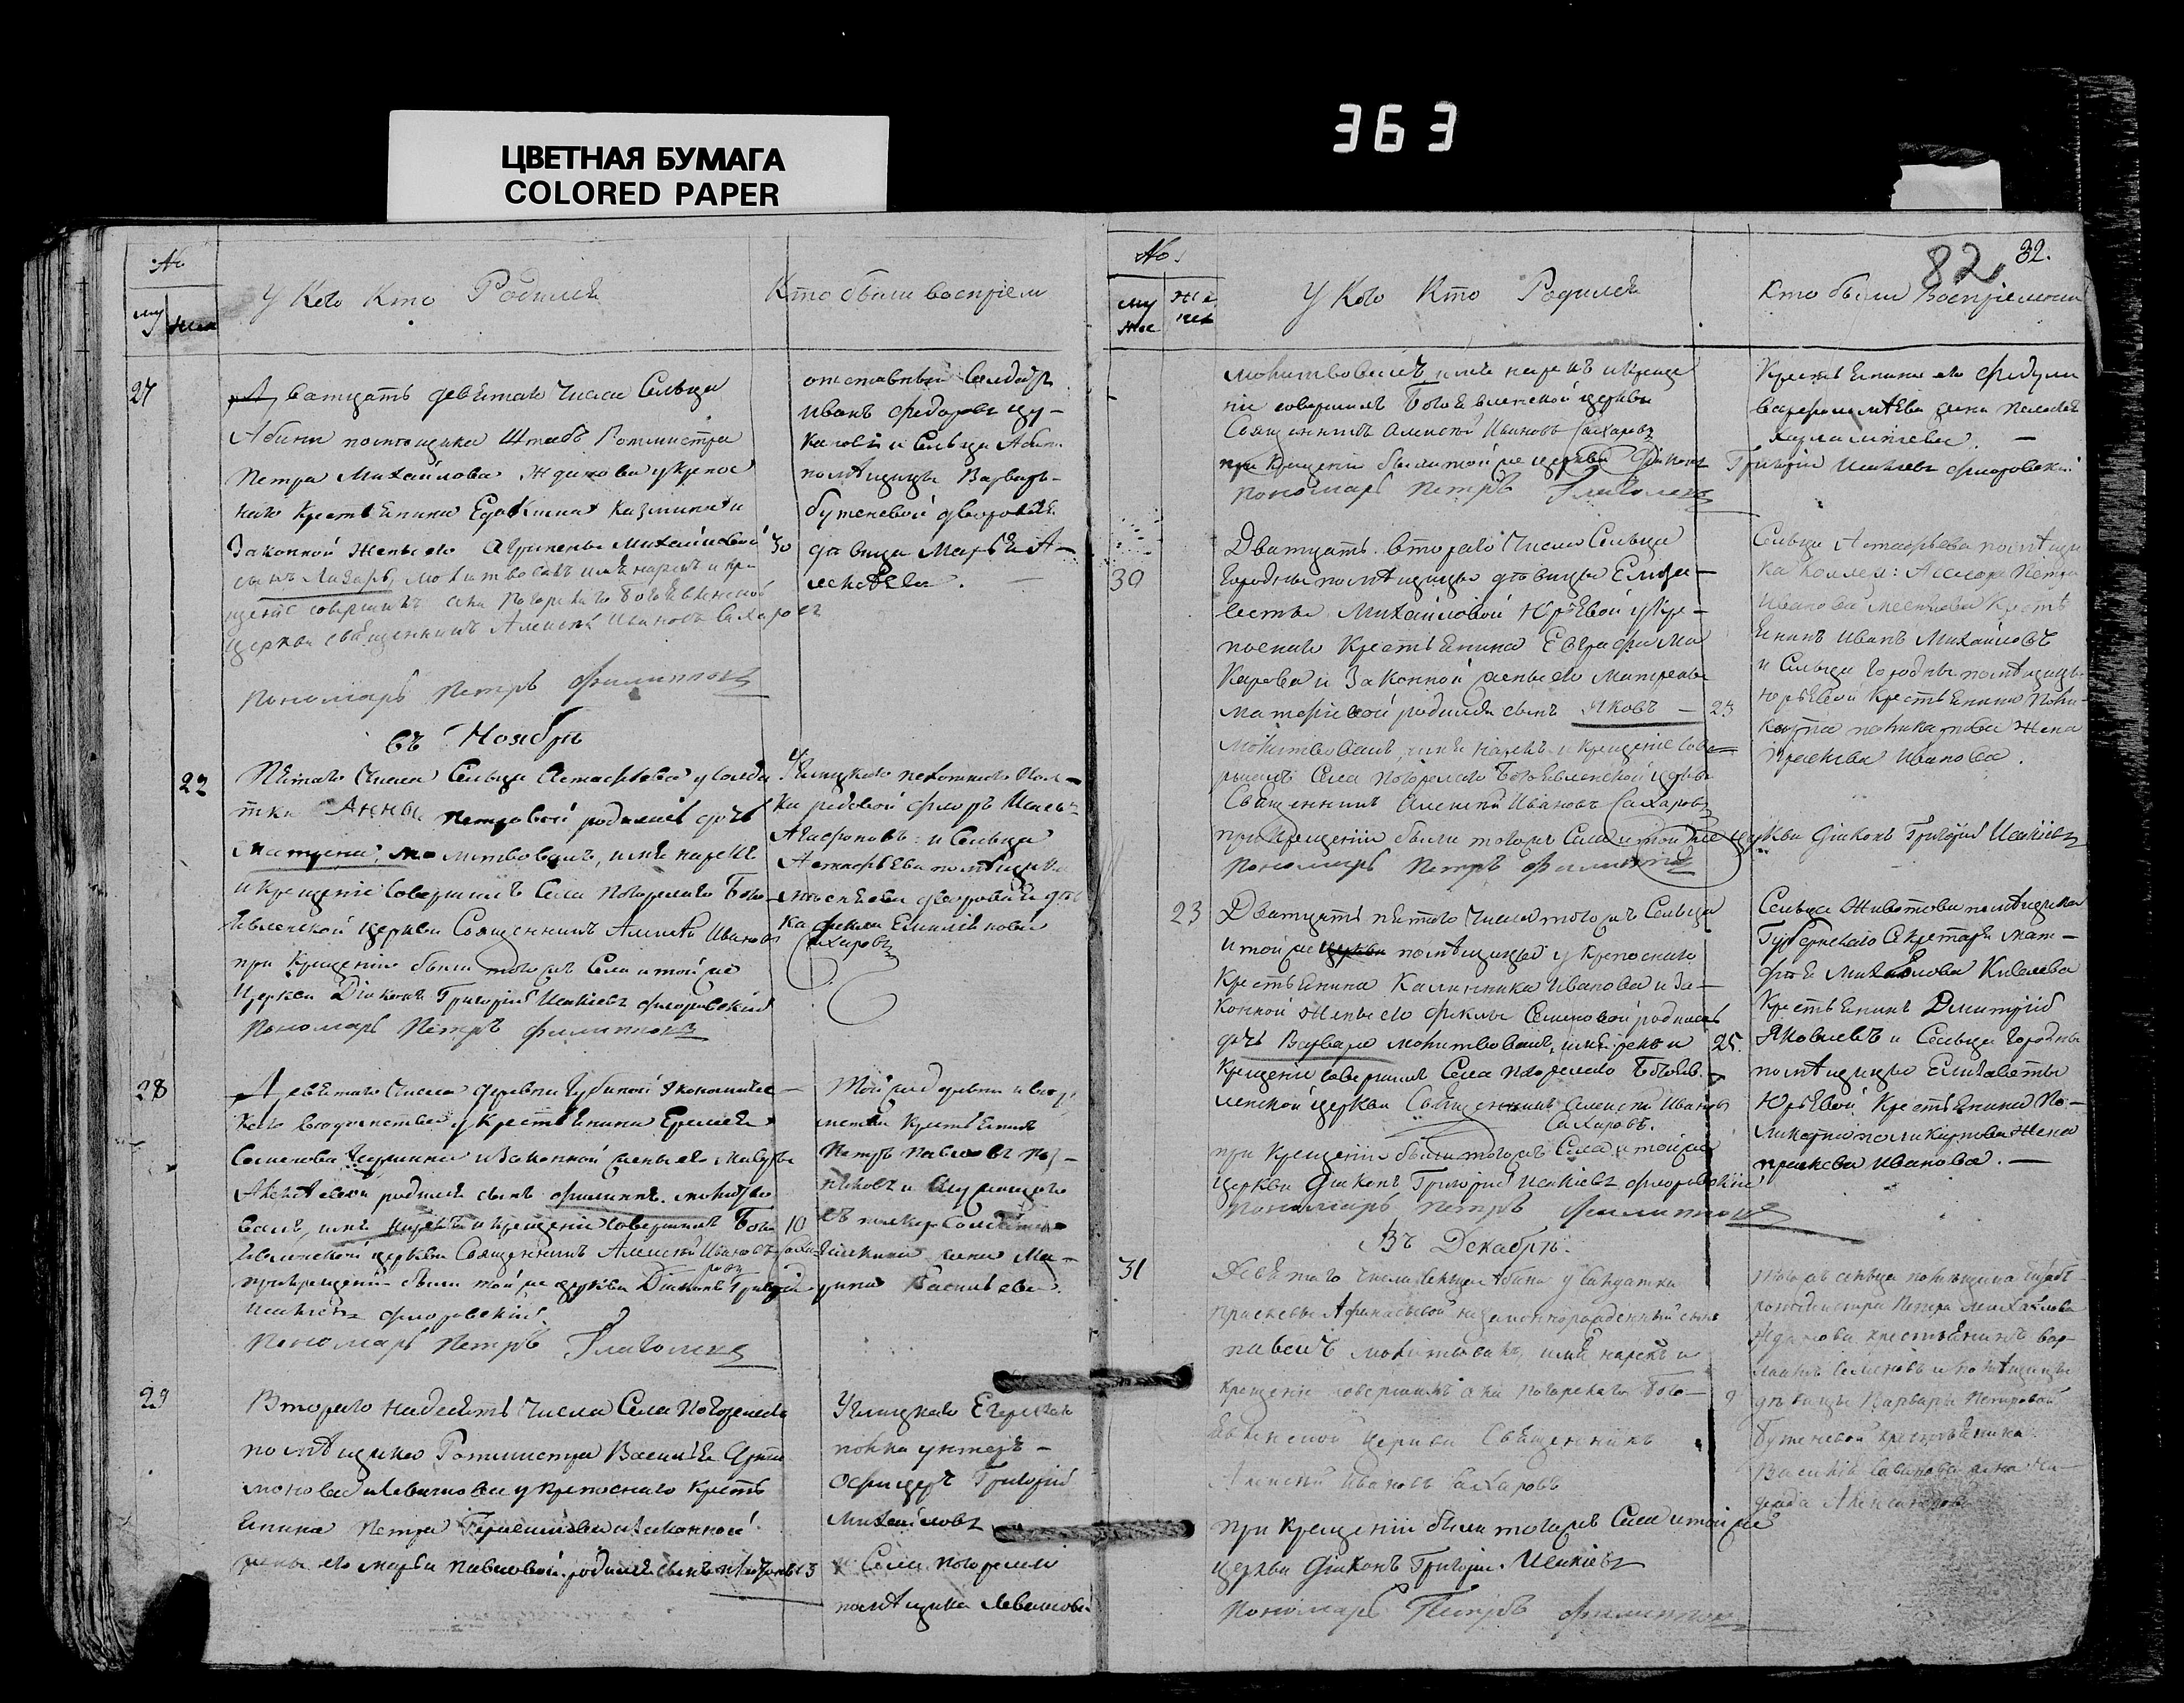 ЦВЕТНАЯ БУМАГА
COLORED PAPER
363
№
му
жен
У Кого Кто Родился
Кто были восприем
27
Дватцать девятаго числа Сельца
Абина помѣщика Штабъ Ротмистра
Петра Михайлова Жданова у крепос
наго крестьянина Едокима Казмина и
Законной жены его Агрипены Михайловой 30
сынъ Лазарь, молитвовалъ имя нарекъ и кре
щение совершилъ села Погорелаго Богоявленской
церкви священникъ Алексѣй Ивановъ Сахаровъ
Пономарь Петръ Филипповъ
отставный Салдатъ
Иванъ Федоровъ
и Сельца Абин.
помѣщицы Варвары
бутеневой дворовая
дѣвица Марья А-
лексѣева.
въ Ноябрѣ
22
Пятаго Числа Сельца Астафьева у салда
тки Анны Петровой родилась дочь
Матрена, молитвовалъ, имя нарекъ
и крещеніе совершилъ Села Погорелаго Бого-
явленской церкви Священникъ Алексѣй Ивановъ
Сахаровъ
при крещеніи были тогожъ Села и той же
Церкви Діаконъ Григорій Исакіевъ Флоровскій
Пономарь Петръ Филипповъ
Углицкаго пехотнаго Пол-
ка редовой Флоръ
Агафоновъ и Сельца
Астафьева помѣщика
дворовая дѣв
ка Фекла Емилянова
28
Девятаго Числа деревни Губиной Экономичес-
каго вѣдомства у Крестьянина Еремея
Семенова и Законной жены его Мавры
Алексѣевой родился сынъ Филиппъ. молитво
валъ, имя нарекъ и крещеніе совершилъ Бого 10
явленской церкви Священникъ Алексѣй Ивановъ Саха
ровъ
при крещеніи были той же церкви Діаконъ Григорій
Исакіевъ Флоровскій.
Пономарь Петръ Глаголевъ
Той же деревни и вѣдо
мства крестьянинъ
Петръ Павловъ
жена Ма-
рина Васильева.
29
Втораго надесять числа Села Погорелаго
помѣщика Ротмистра Василья
Левашова у крепоснаго кресть
янина Петра Герасимова и законной
жены его Марьи Павловой родился сынъ 13
Углицкаго Егерскаго
полка унтеръ-
офицеръ Григорій
Михайловъ
и Села Погорелаго
помѣщика Левашова
№.
му
жес
же
нск
У Кого Кто Родился
82
32.
Кто были Воспріемники
молитвовалъ, имя нарекъ и креще
ніе совершилъ Богоявленской церкви
Священникъ Алексѣй Ивановъ Сахаровъ
при крещеніи были той же церкви Діаконъ Григорій Исакіевъ Флоровскій
Пономарь Петръ Глаголевъ
Крестьянина его Федула
Варфоломѣева жена Пелагея
30
Дватцать втораго Числа Сельца
Городны помѣщицы дѣвицы Елиза-
веты Михайловой Юрьевой у кре-
поснаго Крестьянина Евграфа Ма
карова и Законной жены его Матрены
Матфеевой родился сынъ Яковъ - 23
молитвовалъ, имя нарекъ и крещеніе сове-
ршилъ Села Погорелаго Богоявленской церкви
Священникъ Алексѣй Ивановъ Сахаровъ
при крещеніи были тогожъ Села и той же церкви Діаконъ Григорій Исакіевъ
Пономарь Петръ Филипповъ
Сельца Астафьева помѣщи
ка Коллеж: Асессора Петра
Иванова кресть
янинъ Иванъ Михайловъ
и Сельца Городны помѣщицы
Юрьевой крестьянина Поли
карпа Поликарпова жена
Праскева Иванова.
23
Дватцать пятаго числа тогожъ Сельца
и той же помѣщицы у крепоснаго
Крестьянина Калинника Иванова и за-
конной жены его Феклы Семеновой родилась
дочь Варвара молитвовалъ, имя нарекъ и 25.
Крещеніе совершилъ Села Погорелаго Богояв-
ленской церкви Священникъ Алексѣй Ивановъ
Сахаровъ.
при Крещеніи были тогожъ Села и той же
церкви Діаконъ Григорій Исакіевъ Флоровскій
Пономарь Петръ Филипповъ
Сельца Животова помѣщика
Губернскаго Секретаря Мат-
фея Михайлова
Крестьянинъ Димитрій
Яковлевъ и Сельца Городны
помѣщицы Елизаветы
Юрьевой Крестьянина По-
ликарпа Поликарпова жена
Праскева Иванова.
Въ Декабрѣ.
31
Девятаго числа сельца Абина у салдатки
Праскевы Афанасьевой незаконнорожденный сынъ
Павелъ молитвовалъ, имя нарекъ и
крещеніе совершилъ села Погорелаго Бого- 9
явленской церкви Священникъ
Алексѣй Ивановъ Сахаровъ
при крещеніи были тогожъ Села и той же
церкви Діаконъ Григорій Исакіевъ
Пономарь Петръ Филипповъ
Того жъ сельца помѣщика Штабъ
ротмистра Петра Михайлова
Жданова крестьянинъ
Семеновъ и помѣщицы
дѣвицы Варвары Петровой
Бутеневой крестьянина
Василія Савинова жена На-
дежда Александрова